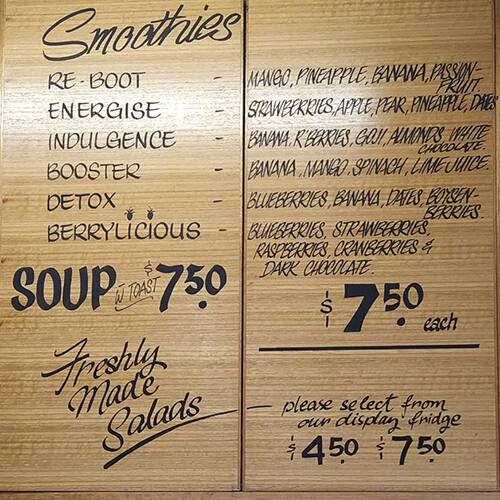 Smoothies
RE-BOOT - MANGO, PINEAPPLE, BANANA, PASSION-
FRUIT
ENERGISE - STRAWBERRIES, APPLE, PEAR, PINEAPPLE, DATES
INDULGENCE - BANANA, R'BERRIES, GOJI, ALMONDS, WHITE
CHOCOLATE.
BOOSTER - BANANA, MANGO, SPINACH, LIME JUICE.
DETOX - BLUEBERRIES, BANANA, DATES, BOYSEN-
BERRIES.
BERRYLICIOUS - BLUEBERRIES, STRAWBERRIES,
RASPBERRIES, CRANBERRIES &
DARK CHOCOLATE.
SOUP W TOAST $7.50
$7.50 each
Freshly
Made
Salads - please select from
our display fridge
$4.50 $7.50